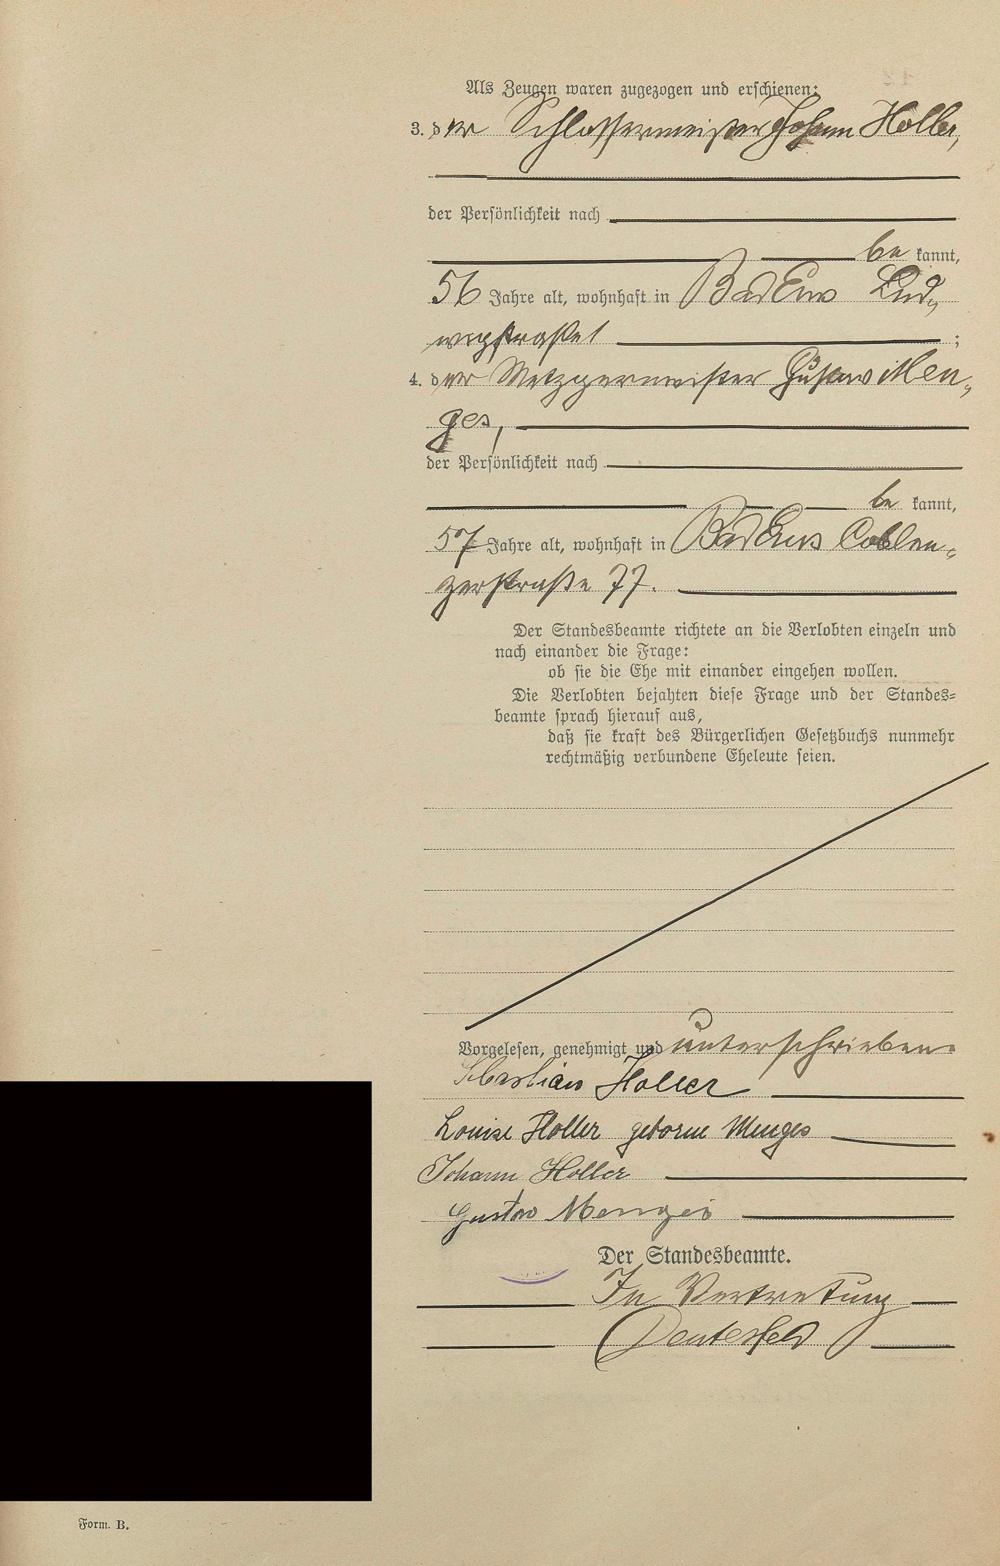 Als Zeugen waren zugezogen und erschienen:
3. der Schlossermeister Johann Holler,
der Persönlichkeit nach
be kannt,
56 Jahre alt, wohnhaft in Bad Ems Lud„
wigstraße 1 ;
4. der Metzgermeister Gustav Men„
ges,
der Persönlichkeit nach
be kannt,
57 Jahre alt, wohnhaft in Bad Ems Coblen„
zerstraße 77.
Der Standesbeamte richtete an die Verlobten einzeln und
nach einander die Frage:
ob sie die Ehe mit einander eingehen wollen.
Die Verlobten bejahten diese Frage und der Standes=
beamte sprach hierauf aus,
daß sie kraft des Bürgerlichen Gesetzbuchs nunmehr
rechtmäßig verbundene Eheleute seien.
Vorgelesen, genehmigt und unterschrieben.
Sebastian Holler
Louise Holler geborne Menges
Johann Holler
Gustav Menges
Der Standesbeamte.
In Vertretung
Form. B.